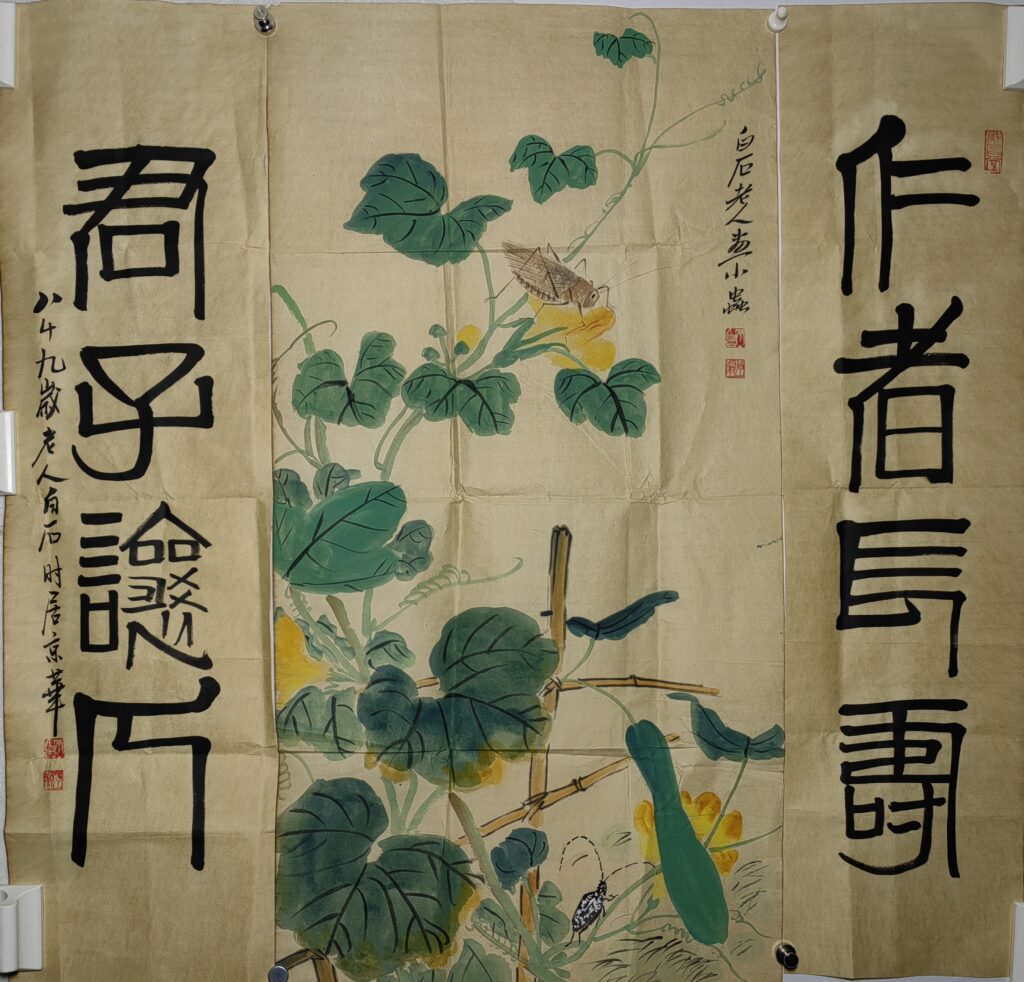 仁者長壽
白石老人画小蟲
君子
八十九歲老人白石时居京華